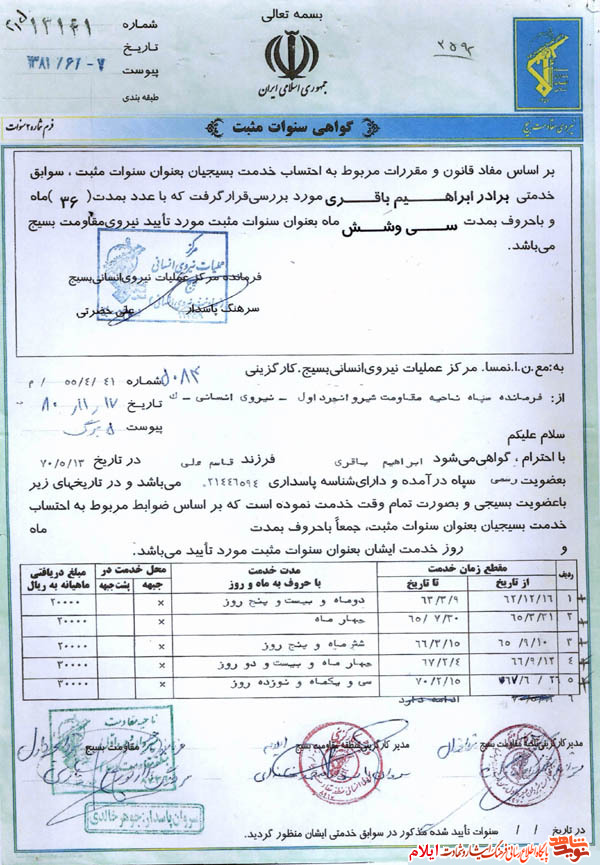 بسمه تعالی
شماره ۱۳۱۴۱
تاریخ ۱۳۸۱/۶/۰۷
پیوست
طبقه بندی
جمهوری اسلامی ایران
نیروی مقاومت بسیج
گواهی سنوات مثبت
فرم شماره ۲ سنوات
بر اساس مفاد قانون و مقررات مربوط به احتساب خدمت بسیجیان بعنوان سنوات مثبت ، سوابق
خدمتی برادر ابراهیم باقری مورد بررسی قرار گرفت که با عدد بمدت( ۳۶ )ماه
و باحروف بمدت سی وشش ماه بعنوان سنوات مثبت مورد تأیید نیروی مقاومت بسیج
می‌باشد.
مرکز
عملیات نیروی انسانی
فرمانده مرکز عملیات نیروی انسانی بسیج
سرهنگ پاسدار علی حضرتی
به:مع.ن.ا.نمسا. مرکز عملیات نیروی انسانی بسیج.کارگزینی
شماره ۵۵/۴/۴۱ / م
از: فرمانده سپاه ناحیه مقاومت شیروانچرداول - نیروی انسانی - ک
تاریخ ۸۰/۱۱/۱۷
پیوست ۵ برگ
سلام علیکم
با احترام ، گواهی می‌شود ابراهیم باقری فرزند قاسم علی در تاریخ ۷۰/۵/۱۳
بعضویت رسمی سپاه درآمده و دارای شناسه پاسداری ۲۱۴۴۶۵۹۴. می‌باشد و در تاریخهای زیر
باعضویت بسیجی و بصورت تمام وقت خدمت نموده است که بر اساس ضوابط مربوط به احتساب
خدمت بسیجیان بعنوان سنوات مثبت، جمعاً باحروف بمدت ماه
و روز خدمت ایشان بعنوان سنوات مثبت مورد تأیید می‌باشد.
ردیف مقطع زمان خدمت مدت خدمت محل خدمت در مبلغ دریافتی
از تاریخ تا تاریخ با حروف به ماه و روز جبهه پشت جبهه ماهیانه به ریال
۱ ۶۲/۱۲/۱۶ ۶۳/۳/۹ دوماه و بیست و پنج روز × ۲۰۰۰۰
۲ ۶۵/۳/۳۱ ۶۵/۷/۳۰ چهار ماه × ۲۰۰۰۰
۳ ۶۵/۹/۱۰ ۶۶/۳/۱۵ شش ماه و پنج روز × ۲۰۰۰۰
۴ ۶۶/۹/۱۲ ۶۷/۲/۴ چهار ماه و بیست و دو روز × ۳۰۰۰۰
۵ ۶۷/۶/۲۶ ۷۰/۲/۱۵ سی و یکماه و نوزده روز × ۳۰۰۰۰
۶ ادامه دارد
مدیر کارگزینی ناحیه مقاومت بسیج
مدیر کارگزینی منطقه مقاومت بسیج
مقاومت بسیج
ناحیه مقاومت
سروان پاسدار: جوهر خالدی
در تاریخ / / سنوات تأیید شده مذکور در سوابق خدمتی ایشان منظور گردید.
نوید شاهد
ایلام